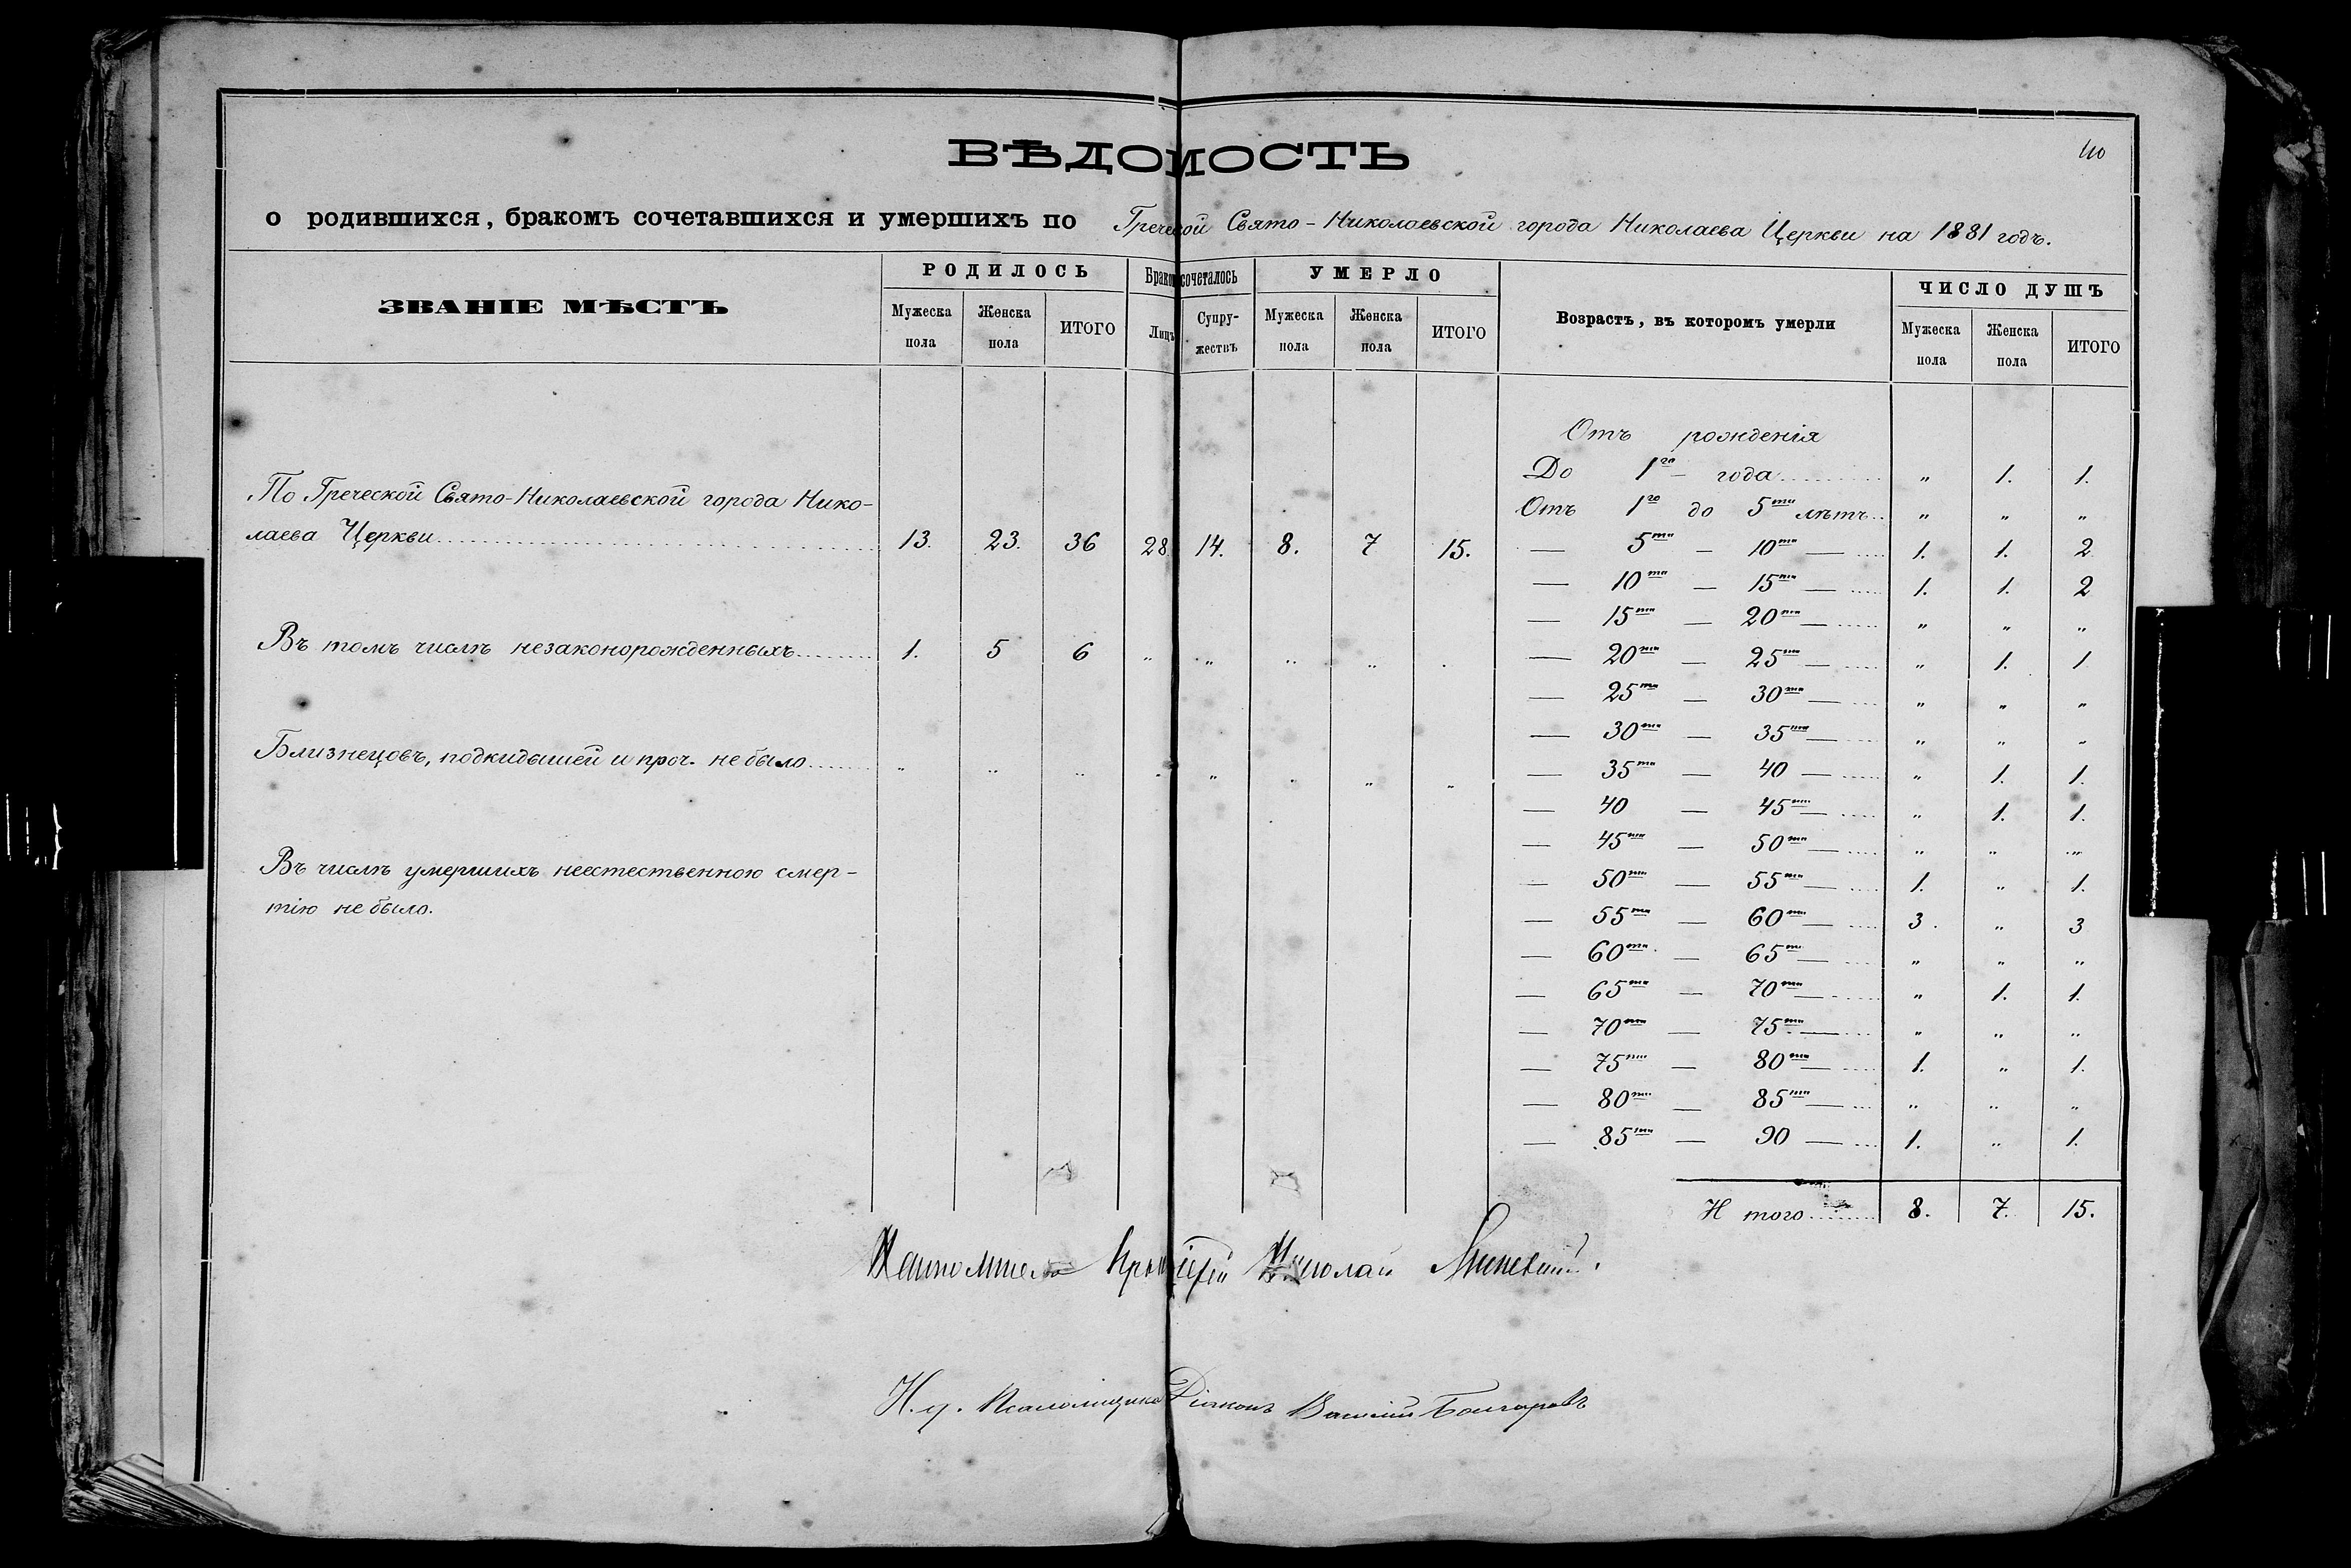 ВѢДОМОСТЬ
40
о родившихся, бракомъ сочетавшихся и умершихъ по Греческой Свято-Николаевской города Николаева Церкви на 1881 годъ.
ЗВАНІЕ МѢСТЪ
РОДИЛОСЬ
Бракомъ сочеталось
УМЕРЛО
Возрастъ, въ которомъ умерли
ЧИСЛО ДУШЪ
Мужеска пола
Женска пола
ИТОГО
Лицъ
Супружествъ
Мужеска пола
Женска пола
ИТОГО
Мужеска пола
Женска пола
ИТОГО
По Греческой Свято-Николаевской города Нико-
лаева Церкви 13. 23. 36 28. 14. 8. 7 15.
Въ томъ числѣ незаконорожденныхъ 1. 5 6 „ „ „ „ .
Близнецовъ, подкидышей и проч. не было „ „ „ „ „ „ „ „
Въ числѣ умершихъ неестественною смер-
тію не было.
Отъ рожденія
До 1го — года „ 1. 1.
Отъ 1го до 5ти лѣтъ „ „ „
— 5ти — 10ти — 1. 1. 2
— 10ти — 15ти — 1. 1. 2
— 15ти — 20ти — „ „ „
— 20ти — 25ти — „ 1. 1
— 25ти — 30ти — „ „ „
— 30ти — 35ти — „ „ „
— 35ти — 40 — „ 1. 1.
— 40 — 45ти — „ 1. 1.
— 45ти — 50ти — „ „ „
— 50ти — 55ти — 1. „ 1.
— 55ти — 60ти — 3. „ 3
— 60ти — 65ти — „ „ „
— 65ти — 70ти — „ 1. 1.
— 70ти — 75ти — „ „ „
— 75ти — 80ти — 1. „ 1.
— 80ти — 85ти — „ „ „
— 85ти — 90 — 1. „ 1.
Итого 8. 7. 15.
Настоятель Николай
И. д. Псаломщика Діаконъ Василій